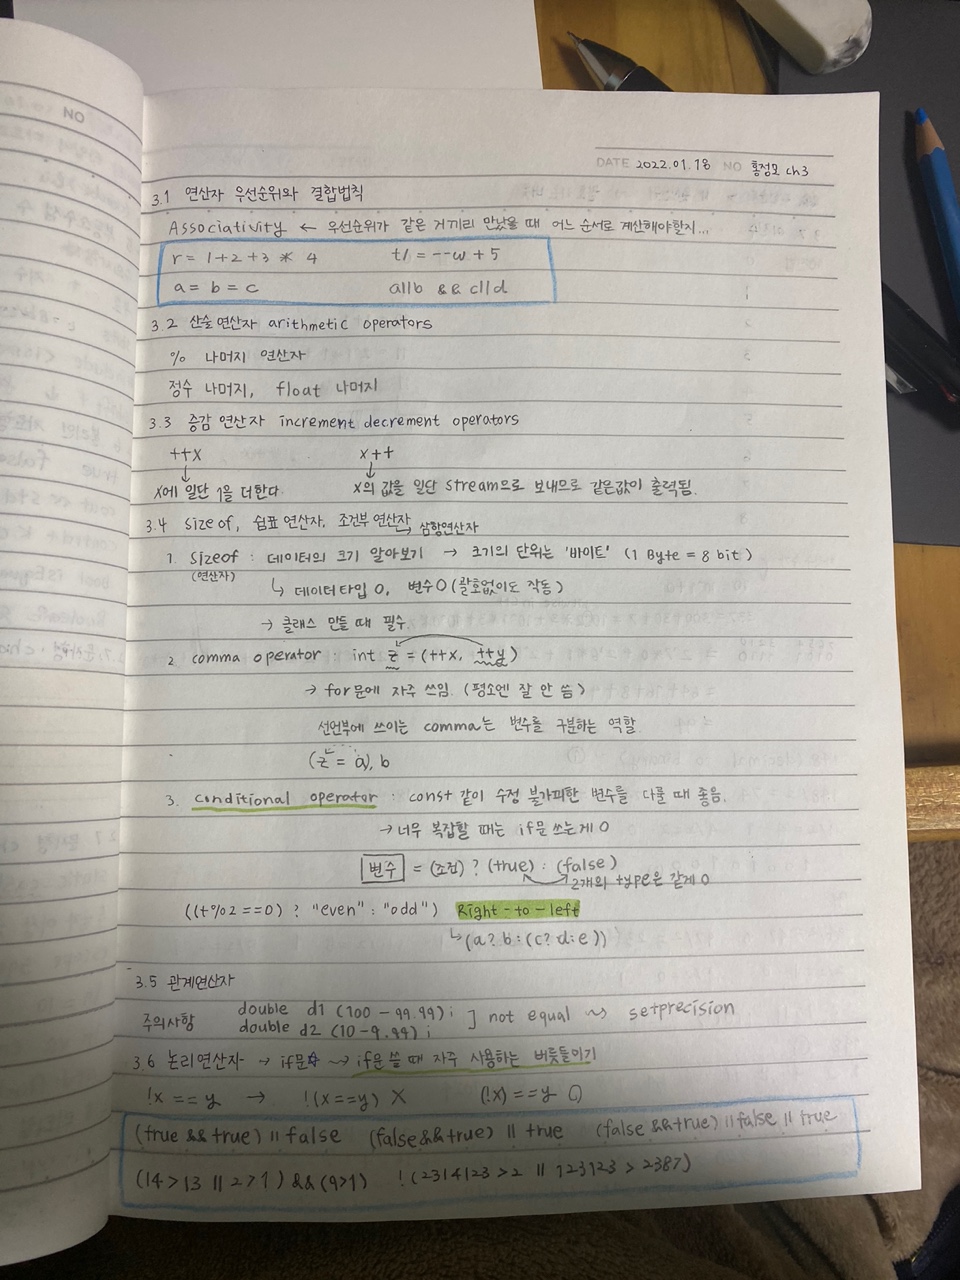 DATE 2022.01.18 NO 홍정모 ch3
3.1 연산자 우선순위와 결합법칙
Associativity ← 우선순위가 같은 거끼리 만났을 때 어느 순서로 계산해야할지...
r = 1+2+3 * 4 t1 = --w + 5
a = b = c a||b && c||d
3.2 산술 연산자 arithmetic operators
% 나머지 연산자
정수 나머지, float 나머지
3.3 증감 연산자 increment decrement operators
++x x++
↓ ↓
x에 일단 1을 더한다. x의 값을 일단 stream으로 보내므로 같은값이 출력됨.
3.4 sizeof, 쉼표 연산자, 조건부 연산자 → 삼항연산자
1. sizeof : 데이터의 크기 알아보기 → 크기의 단위는 '바이트' (1 Byte = 8 bit)
(연산자)
↳ 데이터 타입 O, 변수 O (괄호없이도 작동)
→ 클래스 만들 때 필수.
2. comma operator : int z = (++x, ++y)
→ for문에 자주 쓰임. (평소엔 잘 안 씀)
선언부에 쓰이는 comma는 변수를 구분하는 역할.
(z = a), b
3. conditional operator : const 같이 수정 불가피한 변수를 다룰 때 좋음.
→ 너무 복잡할 때는 if문 쓰는게 O
변수 = (조건) ? (true) : (false)
2개의 type은 같게 O
((t%2 ==0) ? "even" : "odd") Right-to-left
↳ (a? b : (c? d: e))
3.5 관계연산자
주의사항 double d1 (100 - 99.99); ] not equal ~> setprecision
double d2 (10-9.99);
3.6 논리 연산자 → if문 ~> if문 쓸 때 자주 사용하는 버릇들이기
!x == y → !(x==y) X (!x) ==y O
(true && true) || false (false&&true) || true (false &&true) || false || true
(14 >13 || 2 > 1 ) && (9>1) ! (2314123 >2 || 123123 > 2387)
NO